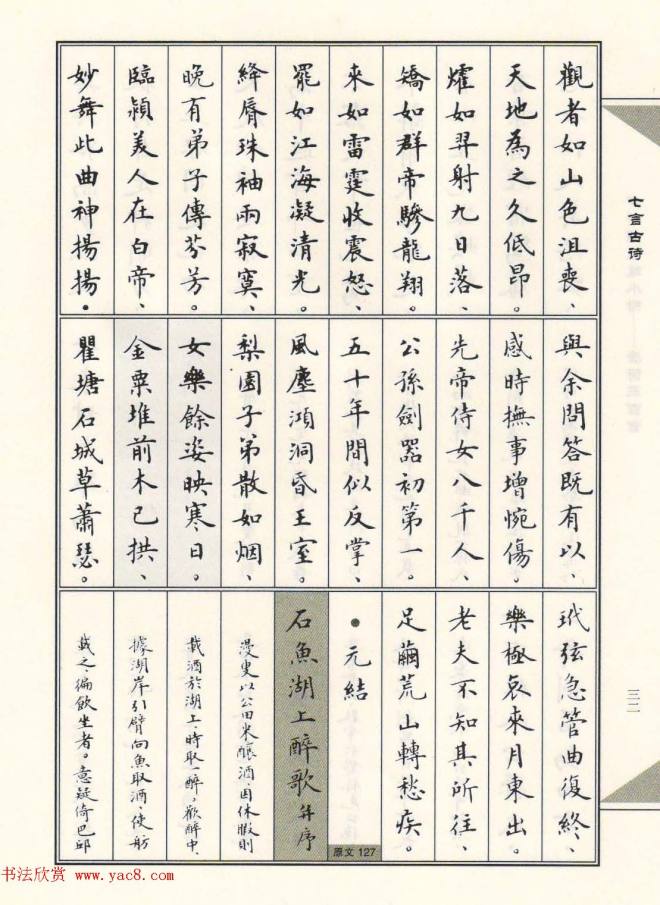 觀者如山色沮喪、
天地為之久低昂。
㸌如羿射九日落、
矯如群帝驂龍翔。
來如雷霆收震怒、
罷如江海凝清光。
絳脣珠袖兩寂寞、
晚有弟子傳芬芳。
臨潁美人在白帝、
妙舞此曲神揚揚。
與余問答既有以、
感時撫事增惋傷。
先帝侍女八千人、
公孫劍器初第一。
五十年間似反掌、
風塵澒洞昏王室。
梨園子弟散如烟、
女樂餘姿映寒日。
金粟堆前木已拱、
瞿塘石城草蕭瑟。
玳弦急管曲復終、
樂極哀來月東出。
老夫不知其所往、
足繭荒山轉愁疾。
●元結
原文 127
石魚湖上醉歌 并序
漫叟以公田米釀酒、因休暇則
載酒於湖上、時取一醉。歡醉中、
據湖岸引臂向魚取酒、使舫
載之、徧飲坐者。意疑倚巴邱
七言古诗
三二
书法欣赏 www.yac8.com